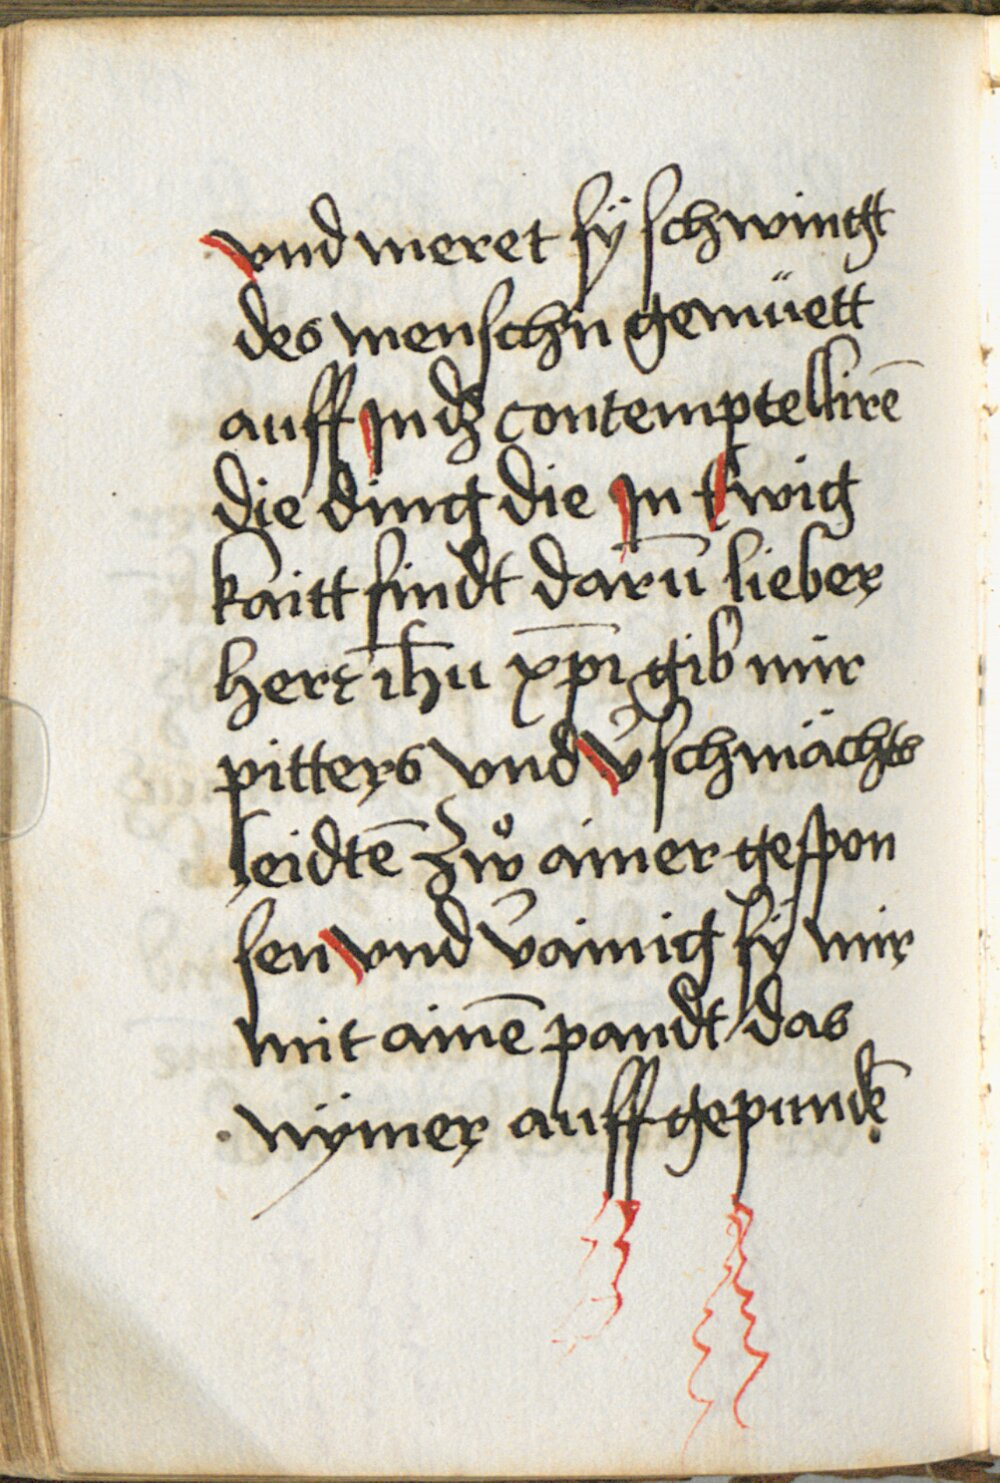 vnd meret sÿ schwingt
des menschn̄ gemüett
auff jn dʒ contemptellirē
die ding die jn Ewig
kaitt sindt darū lieber
herꝛ ih̄u xp̄i gib mir
pitters vnd v̾schmächts
leidtē Zwͦ ainer gespon
sen vnd v̾ainig sÿ mir
mit ainē pandt das
nÿmer auffgepundē